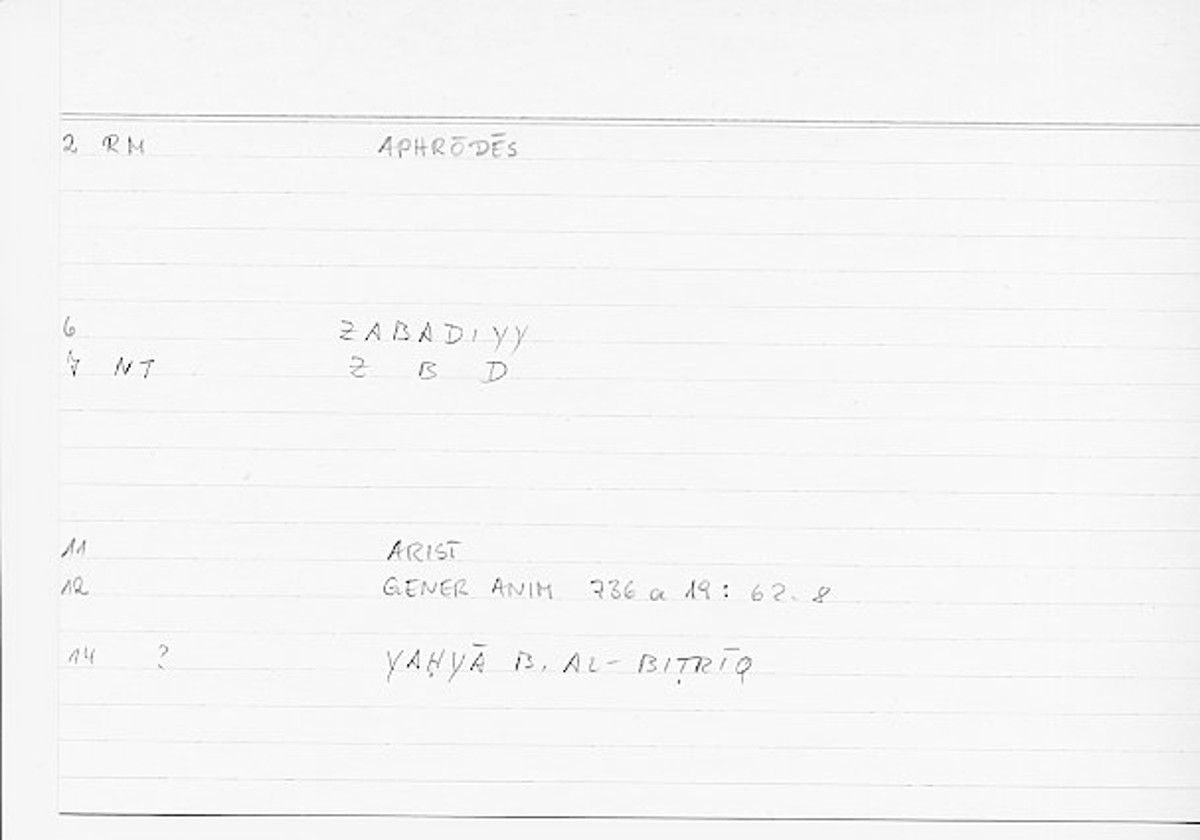 2 RM APHRŌDĒS
6 ZABADIYY
7 NT Z B D
11 ARIST
12 GENER ANIM 736 a 19: 62.8
14 ? YAḤYĀ B. AL-BIṬRĪQ